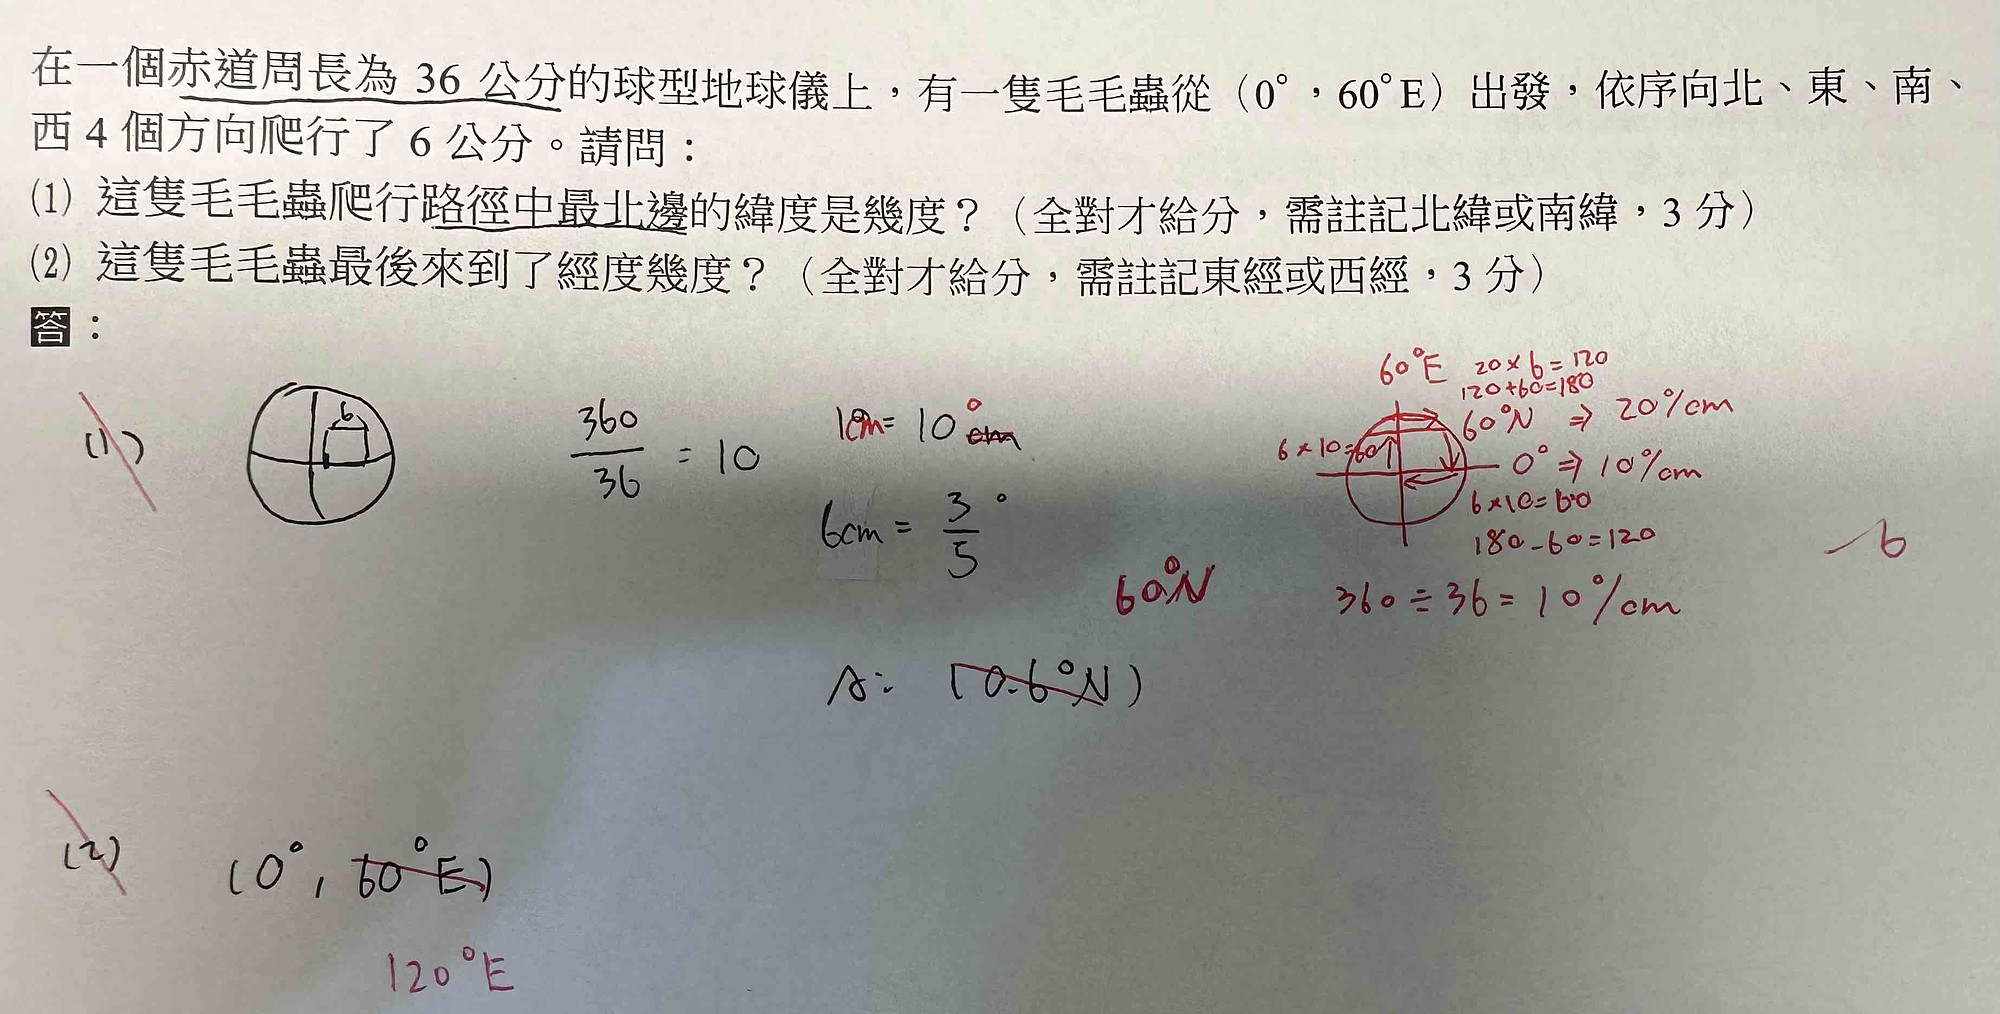 在一個赤道周長為 36 公分的球型地球儀上，有一隻毛毛蟲從（0°，60°E）出發，依序向北、東、南、
西 4 個方向爬行了 6 公分。請問：
⑴ 這隻毛毛蟲爬行路徑中最北邊的緯度是幾度？（全對才給分，需註記北緯或南緯，3 分）
⑵ 這隻毛毛蟲最後來到了經度幾度？（全對才給分，需註記東經或西經，3 分）
答：
(1)
6
360/36 = 10
1cm = 10° cm
6cm = 3/5°
60°N
A: (0.6°N)
60°E 20×6=120
120+60=180
60°N ⇒ 20°/cm
6×10=60
0° ⇒ 10°/cm
6×10=60
180-60=120
360÷36=10°/cm
-6
(2) (0°, 60°E)
120°E